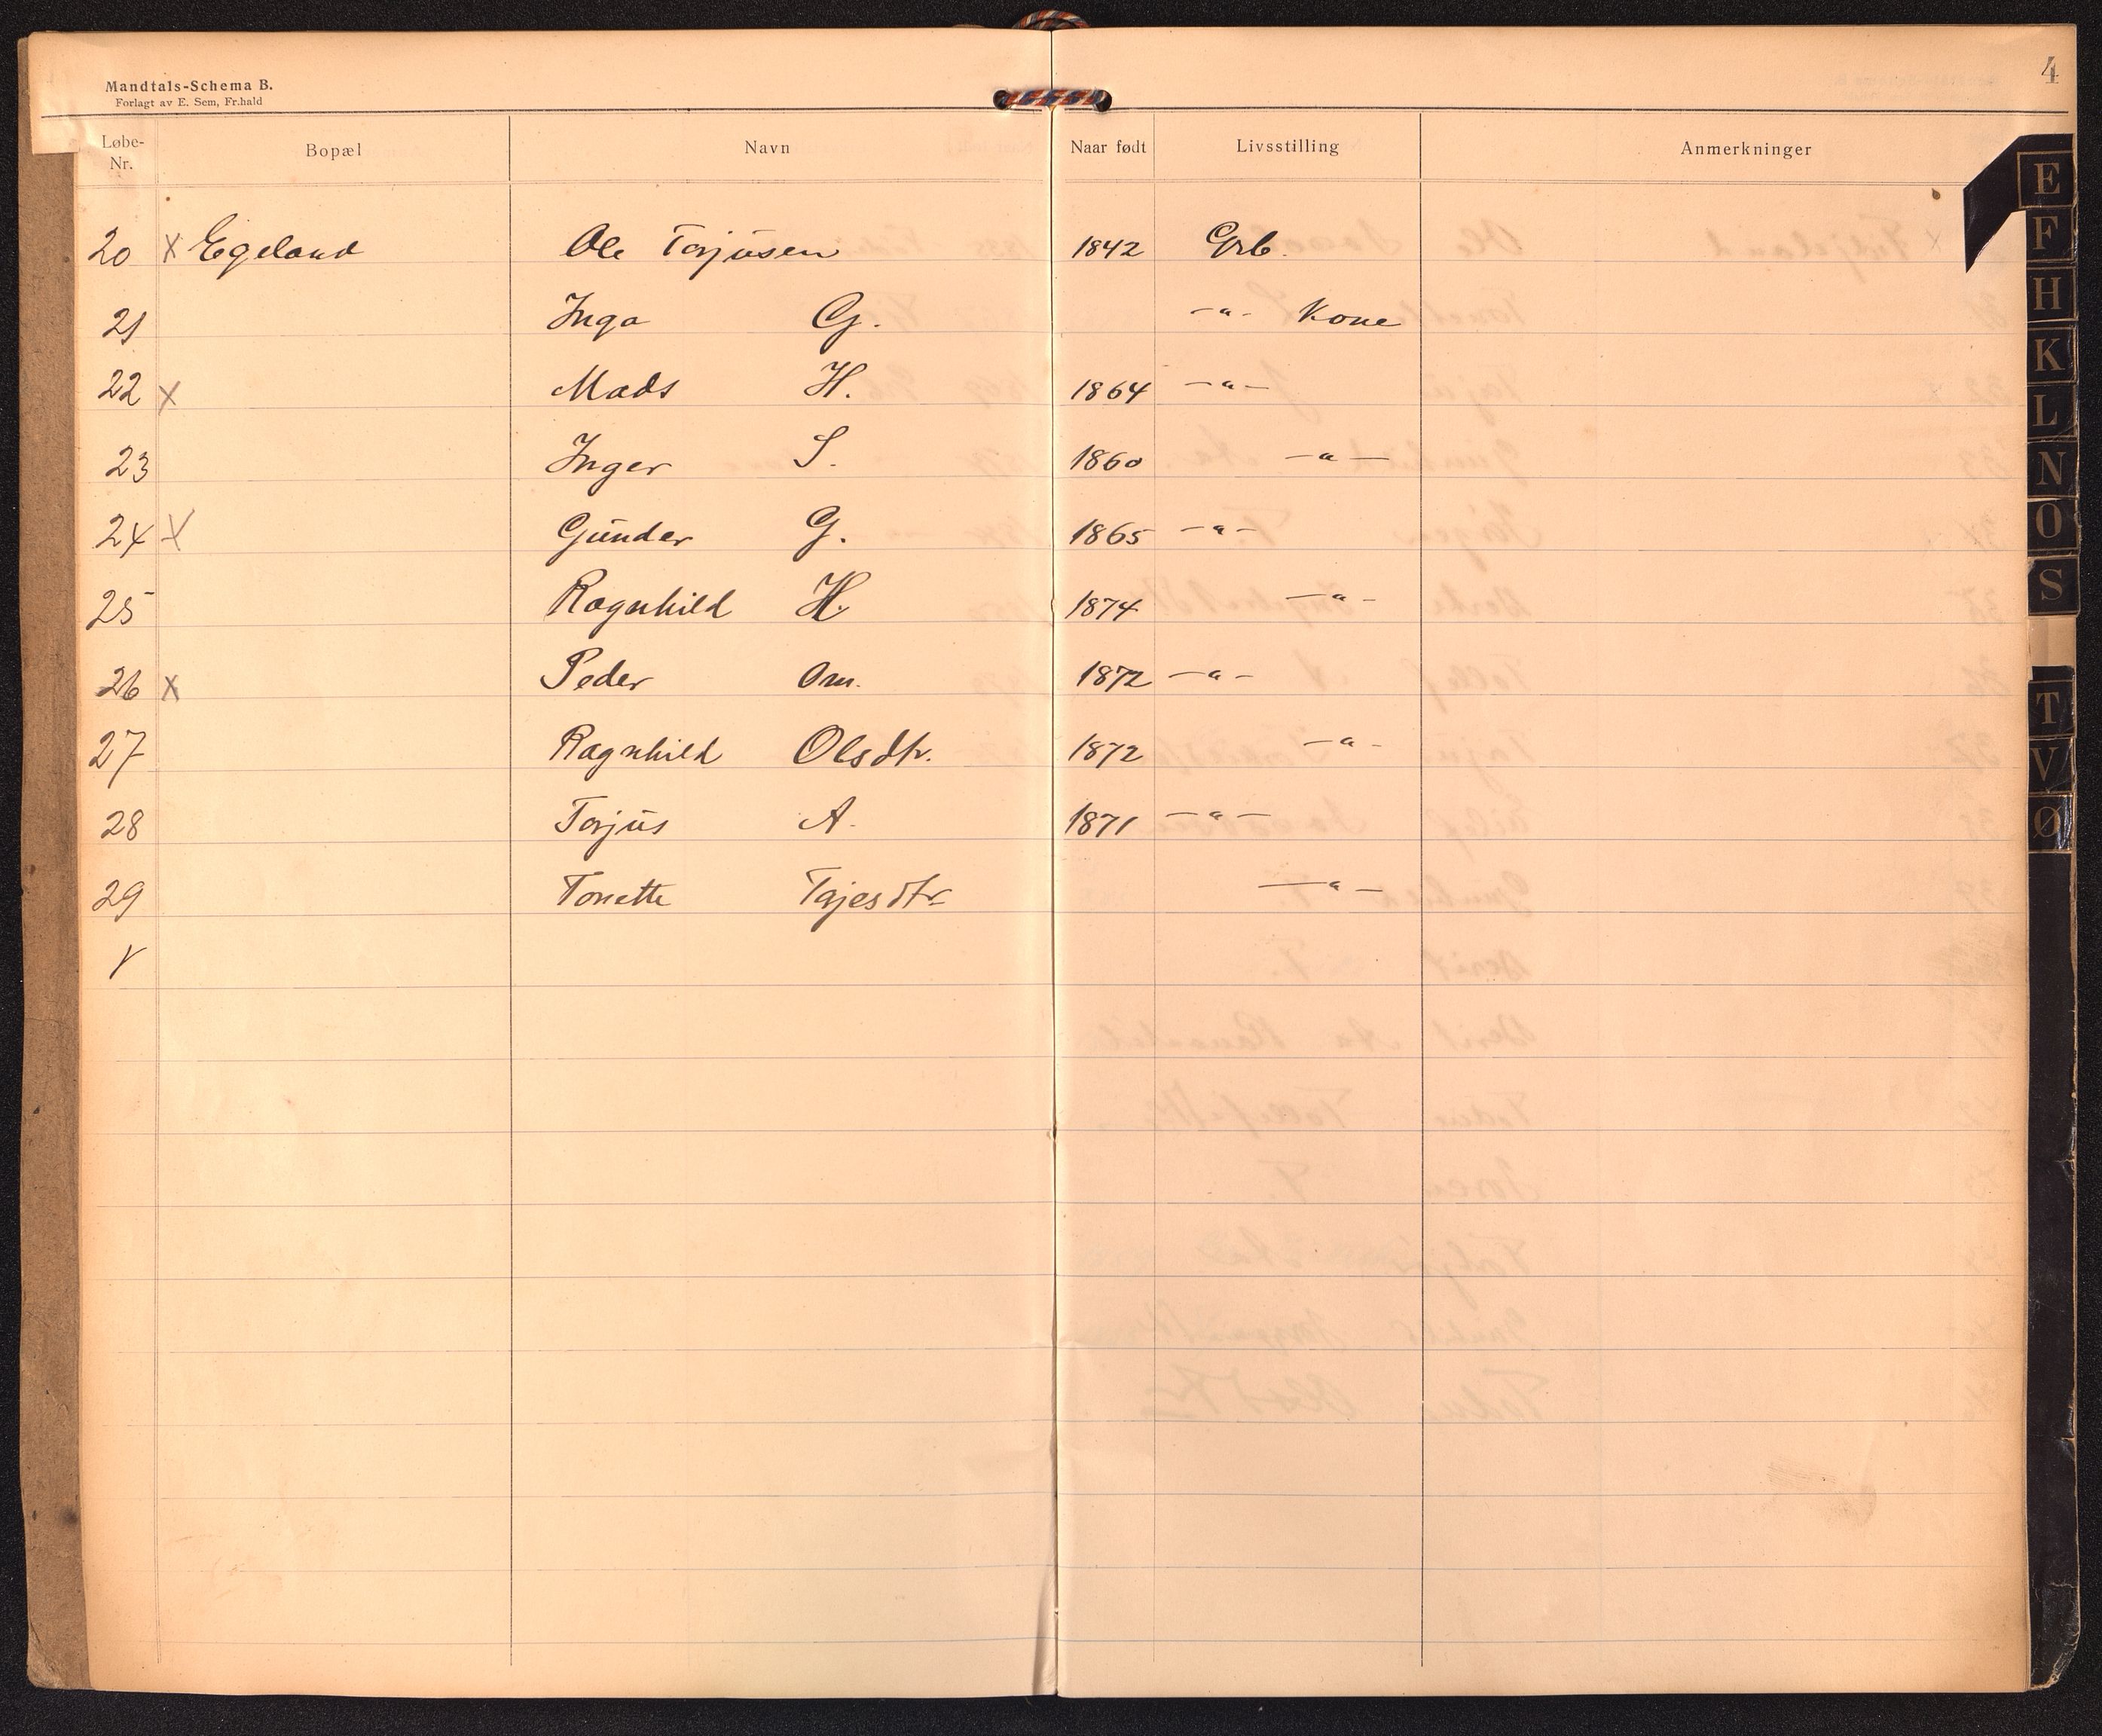 Mandtals-Schema B.
Forlagt av E. Sem, Fr.hald
4
Løbe-Nr. Bopæl Navn Naar født Livsstilling Anmerkninger
20 x Egeland Ole Torjusen 1842 Grb.
21 Inga G. -"- Kone
22 x Mads H. 1864 -"-
23 Inger S. 1860 -"-
24 x Gunder G. 1865 -"-
25 Ragnhild H. 1874 -"-
26 x Peder Om. 1872 -"-
27 Ragnhild Olsdtr. 1872 -"-
28 Torjus A. 1871 -"-
29 Tonette Tajesdtr. -"-
E
F
H
K
L
N
O
S
T
V
Ø